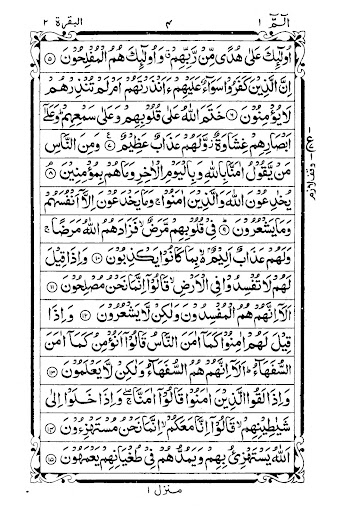 الٓمّٓ ١ ٤ البقرة ٢
اُولٰٓئِكَ عَلٰى هُدًى مِّنْ رَّبِّهِمْ ۙ وَاُولٰٓئِكَ هُمُ الْمُفْلِحُوْنَ ۝٥
اِنَّ الَّذِيْنَ كَفَرُوْا سَوَآءٌ عَلَيْهِمْ ءَاَنْذَرْتَهُمْ اَمْ لَمْ تُنْذِرْهُمْ
لَا يُؤْمِنُوْنَ ۝٦ خَتَمَ اللّٰهُ عَلٰى قُلُوْبِهِمْ وَعَلٰى سَمْعِهِمْ ؕ وَعَلٰٓى
اَبْصَارِهِمْ غِشَاوَةٌ ز وَّلَهُمْ عَذَابٌ عَظِيْمٌ ۝٧ وَمِنَ النَّاسِ
مَنْ يَّقُوْلُ اٰمَنَّا بِاللّٰهِ وَبِالْيَوْمِ الْاٰخِرِ وَمَا هُمْ بِمُؤْمِنِيْنَ ۝٨
يُخٰدِعُوْنَ اللّٰهَ وَالَّذِيْنَ اٰمَنُوْا ۚ وَمَا يَخْدَعُوْنَ اِلَّآ اَنْفُسَهُمْ
وَمَا يَشْعُرُوْنَ ۝٩ فِيْ قُلُوْبِهِمْ مَّرَضٌ ۙ فَزَادَهُمُ اللّٰهُ مَرَضًا ۚ
وَلَهُمْ عَذَابٌ اَلِيْمٌ ۙ بِمَا كَانُوْا يَكْذِبُوْنَ ۝١٠ وَاِذَا قِيْلَ
لَهُمْ لَا تُفْسِدُوْا فِى الْاَرْضِ ۙ قَالُوْٓا اِنَّمَا نَحْنُ مُصْلِحُوْنَ ۝١١
اَلَآ اِنَّهُمْ هُمُ الْمُفْسِدُوْنَ وَلٰكِنْ لَّا يَشْعُرُوْنَ ۝١٢ وَاِذَا
قِيْلَ لَهُمْ اٰمِنُوْا كَمَآ اٰمَنَ النَّاسُ قَالُوْٓا اَنُؤْمِنُ كَمَآ اٰمَنَ
السُّفَهَآءُ ؕ اَلَآ اِنَّهُمْ هُمُ السُّفَهَآءُ وَلٰكِنْ لَّا يَعْلَمُوْنَ ۝١٣
وَاِذَا لَقُوا الَّذِيْنَ اٰمَنُوْا قَالُوْٓا اٰمَنَّا ۖۚ وَاِذَا خَلَوْا اِلٰى
شَيٰطِيْنِهِمْ ۙ قَالُوْٓا اِنَّا مَعَكُمْ ۙ اِنَّمَا نَحْنُ مُسْتَهْزِءُوْنَ ۝١٤
اَللّٰهُ يَسْتَهْزِئُ بِهِمْ وَيَمُدُّهُمْ فِيْ طُغْيَانِهِمْ يَعْمَهُوْنَ ۝١٥
منزل ١
وقف لازم